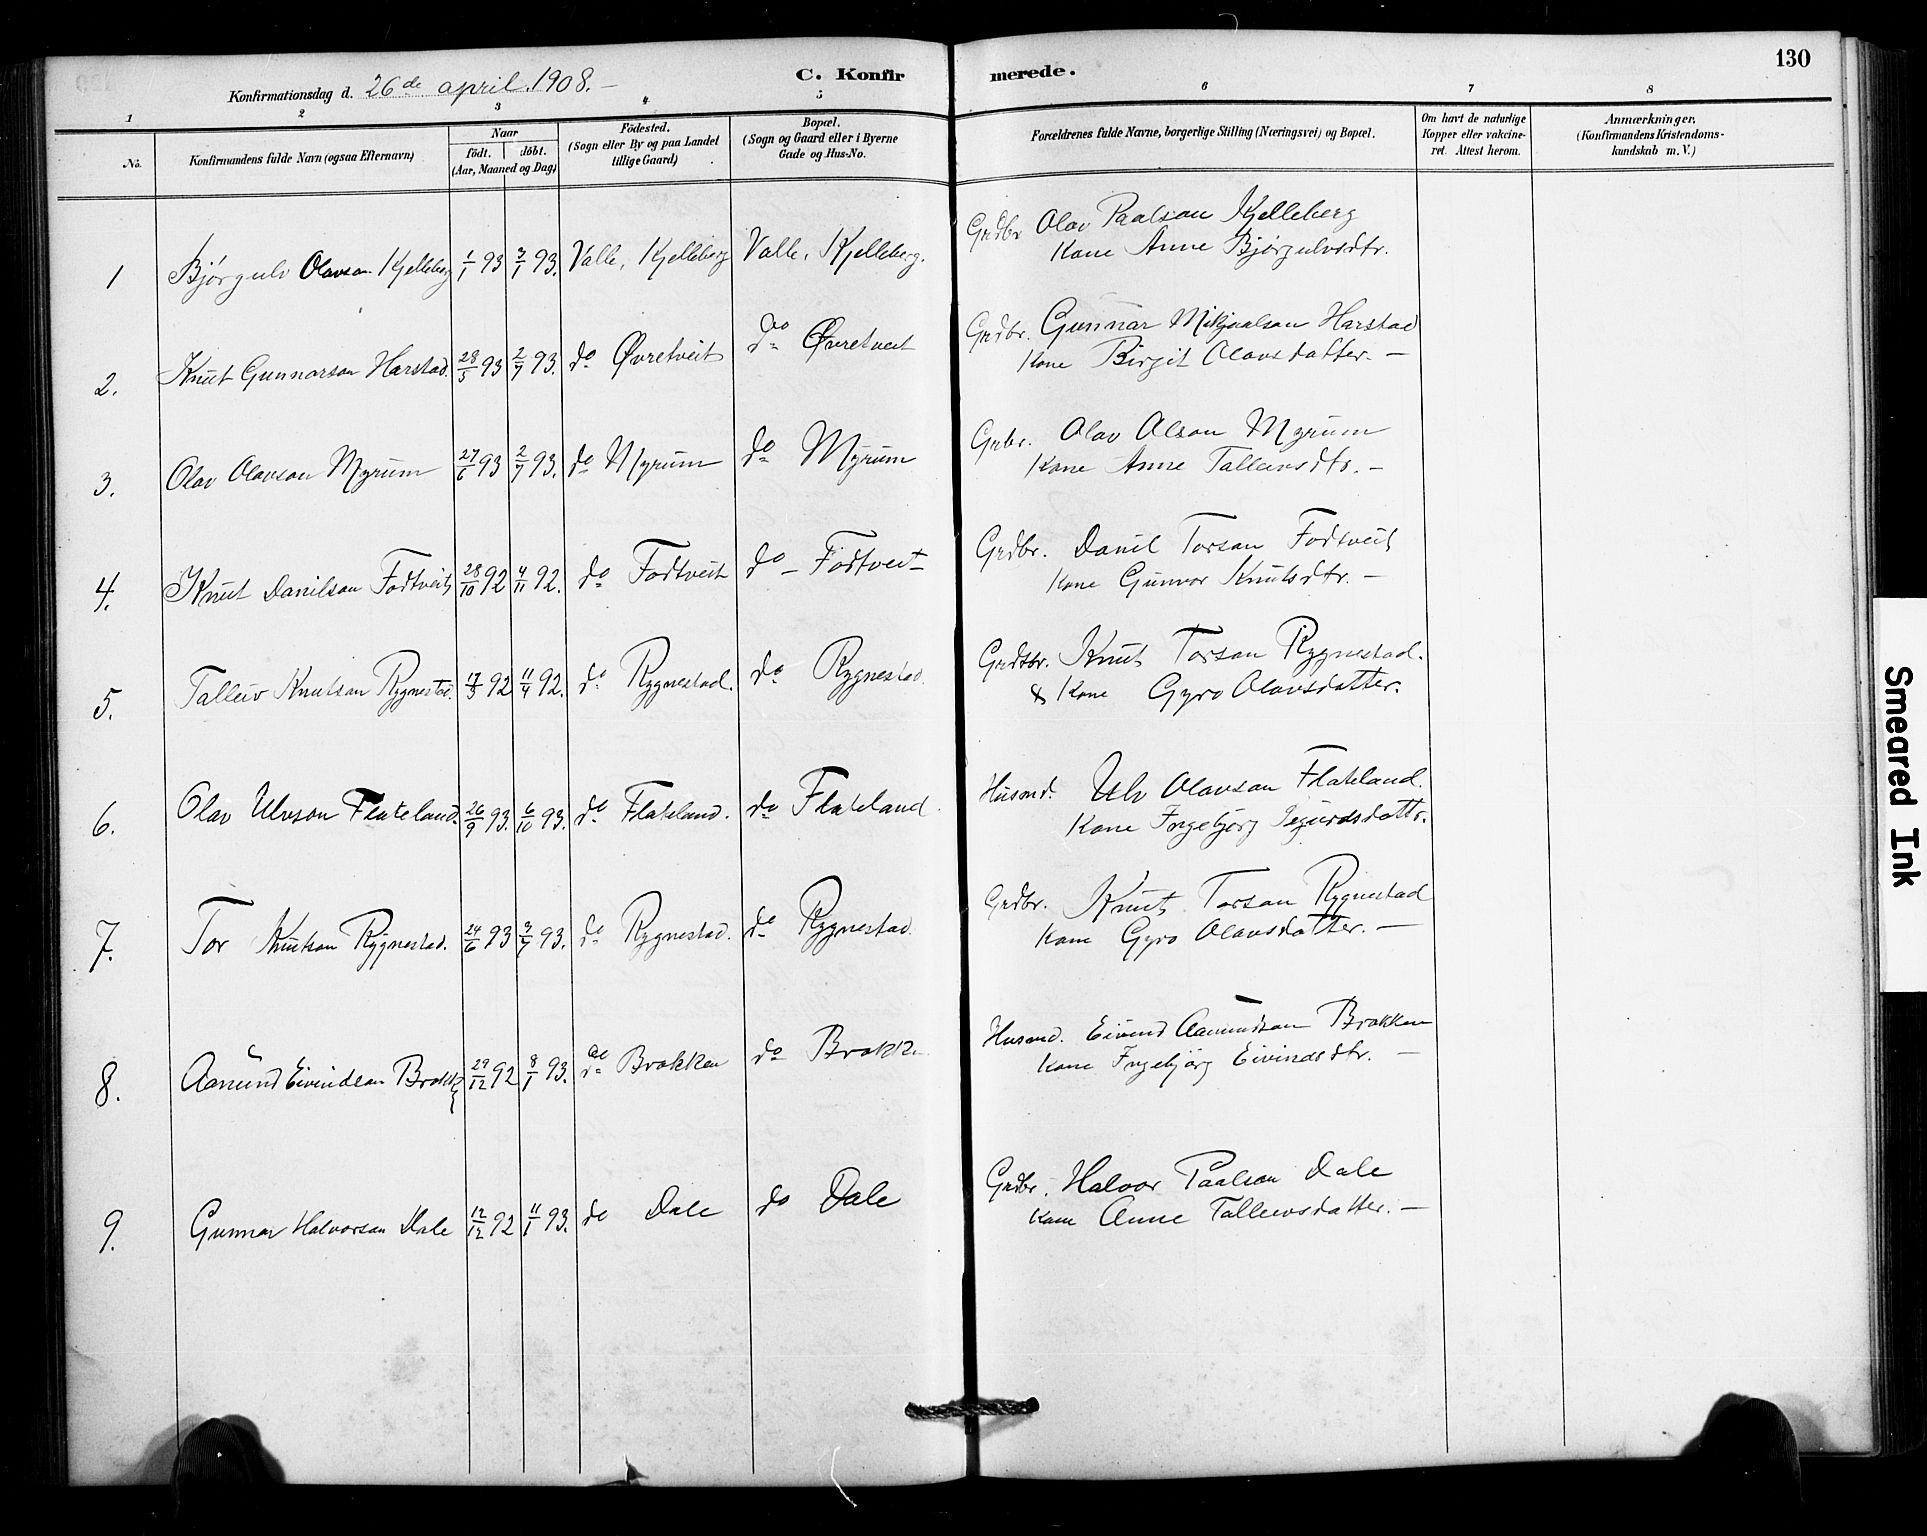 130
C. Konfirmerede.
Konfirmationsdag d. 26de april 1908. —
1 2 3 4 5 6 7 8
No.
Konfirmandens fulde Navn (ogsaa Efternavn)
Naar
födt. | döbt.
(Aar, Maaned og Dag)
Födested.
(Sogn eller By og paa Landet
tillige Gaard)
Bopæl.
(Sogn og Gaard eller i Byerne
Gade og Hus-No.
Forældrenes fulde Navne, borgerlige Stilling (Næringsvei) og Bopæl.
Om havt de naturlige
Kopper eller vakcine-
ret. Attest herom.
Anmærkninger,
(Konfirmandens Kristendoms-
kundskab m. V.)
1 Bjørgulv Olavson Kjelleberg 1/1 93 3/1 93. Valle, Kjelleberg Valle, Kjelleberg. Grdbr Olav Paalson Kjelleberg
Kone Anne Bjørgulvsdtr.
2. Knut Gunnarson Harstad. 28/5 93 2/7 93. do Øvretveit do Øvretveit Grdbr. Gunnar Mikjaalson Harstad
Kone Birgit Olavsdatter. —
3. Olav Olavson Myrum 27/6 93 2/7 93. do Myrum do Myrum Grbr. Olav Olson Myrum
Kone Anne Talleivsdtr. —
4. Knut Danilson Fodtveit 28/10 92 4/11 92. do Fodtveit do – Fodtveit Grdbr. Danil Torson Fodtveit
Kone Gunvor Knutsdtr. —
5. Talleiv Knutson Rygnestad. 17/3 92 11/4 92. do Rygnestad. do Rygnestad. Grdbr. Knut Torson Rygnestad.
& Kone Gyro Olavsdatter.
6. Olav Ulvson Flateland. 26/9 93. 6/10 93. do Flateland. do Flateland. Husmd. Ulv Olavson Flateland.
Kone Ingebjørg Sigurdsdattr.
7. Tor Knutson Rygnestad. 24/6 93 3/7 93. do Rygnestad. do Rygnestad. Grdbr. Knut Torson Rygnestad
Kone Gyro Olavsdatter. —
8. Aamund Eivindson Brokke 29/12 92 8/1 93. do Brokken do Brokke Husmd. Eivind Aamundson Brokken
Kone Ingebjørg Eivindsdtr. —
9. Gunnar Halvorson Dale 12/12 92 11/1 93. do Dale do Dale Grdbr. Halvor Paalson Dale
Kone Anne Talleivsdatter. —
Smeared Ink